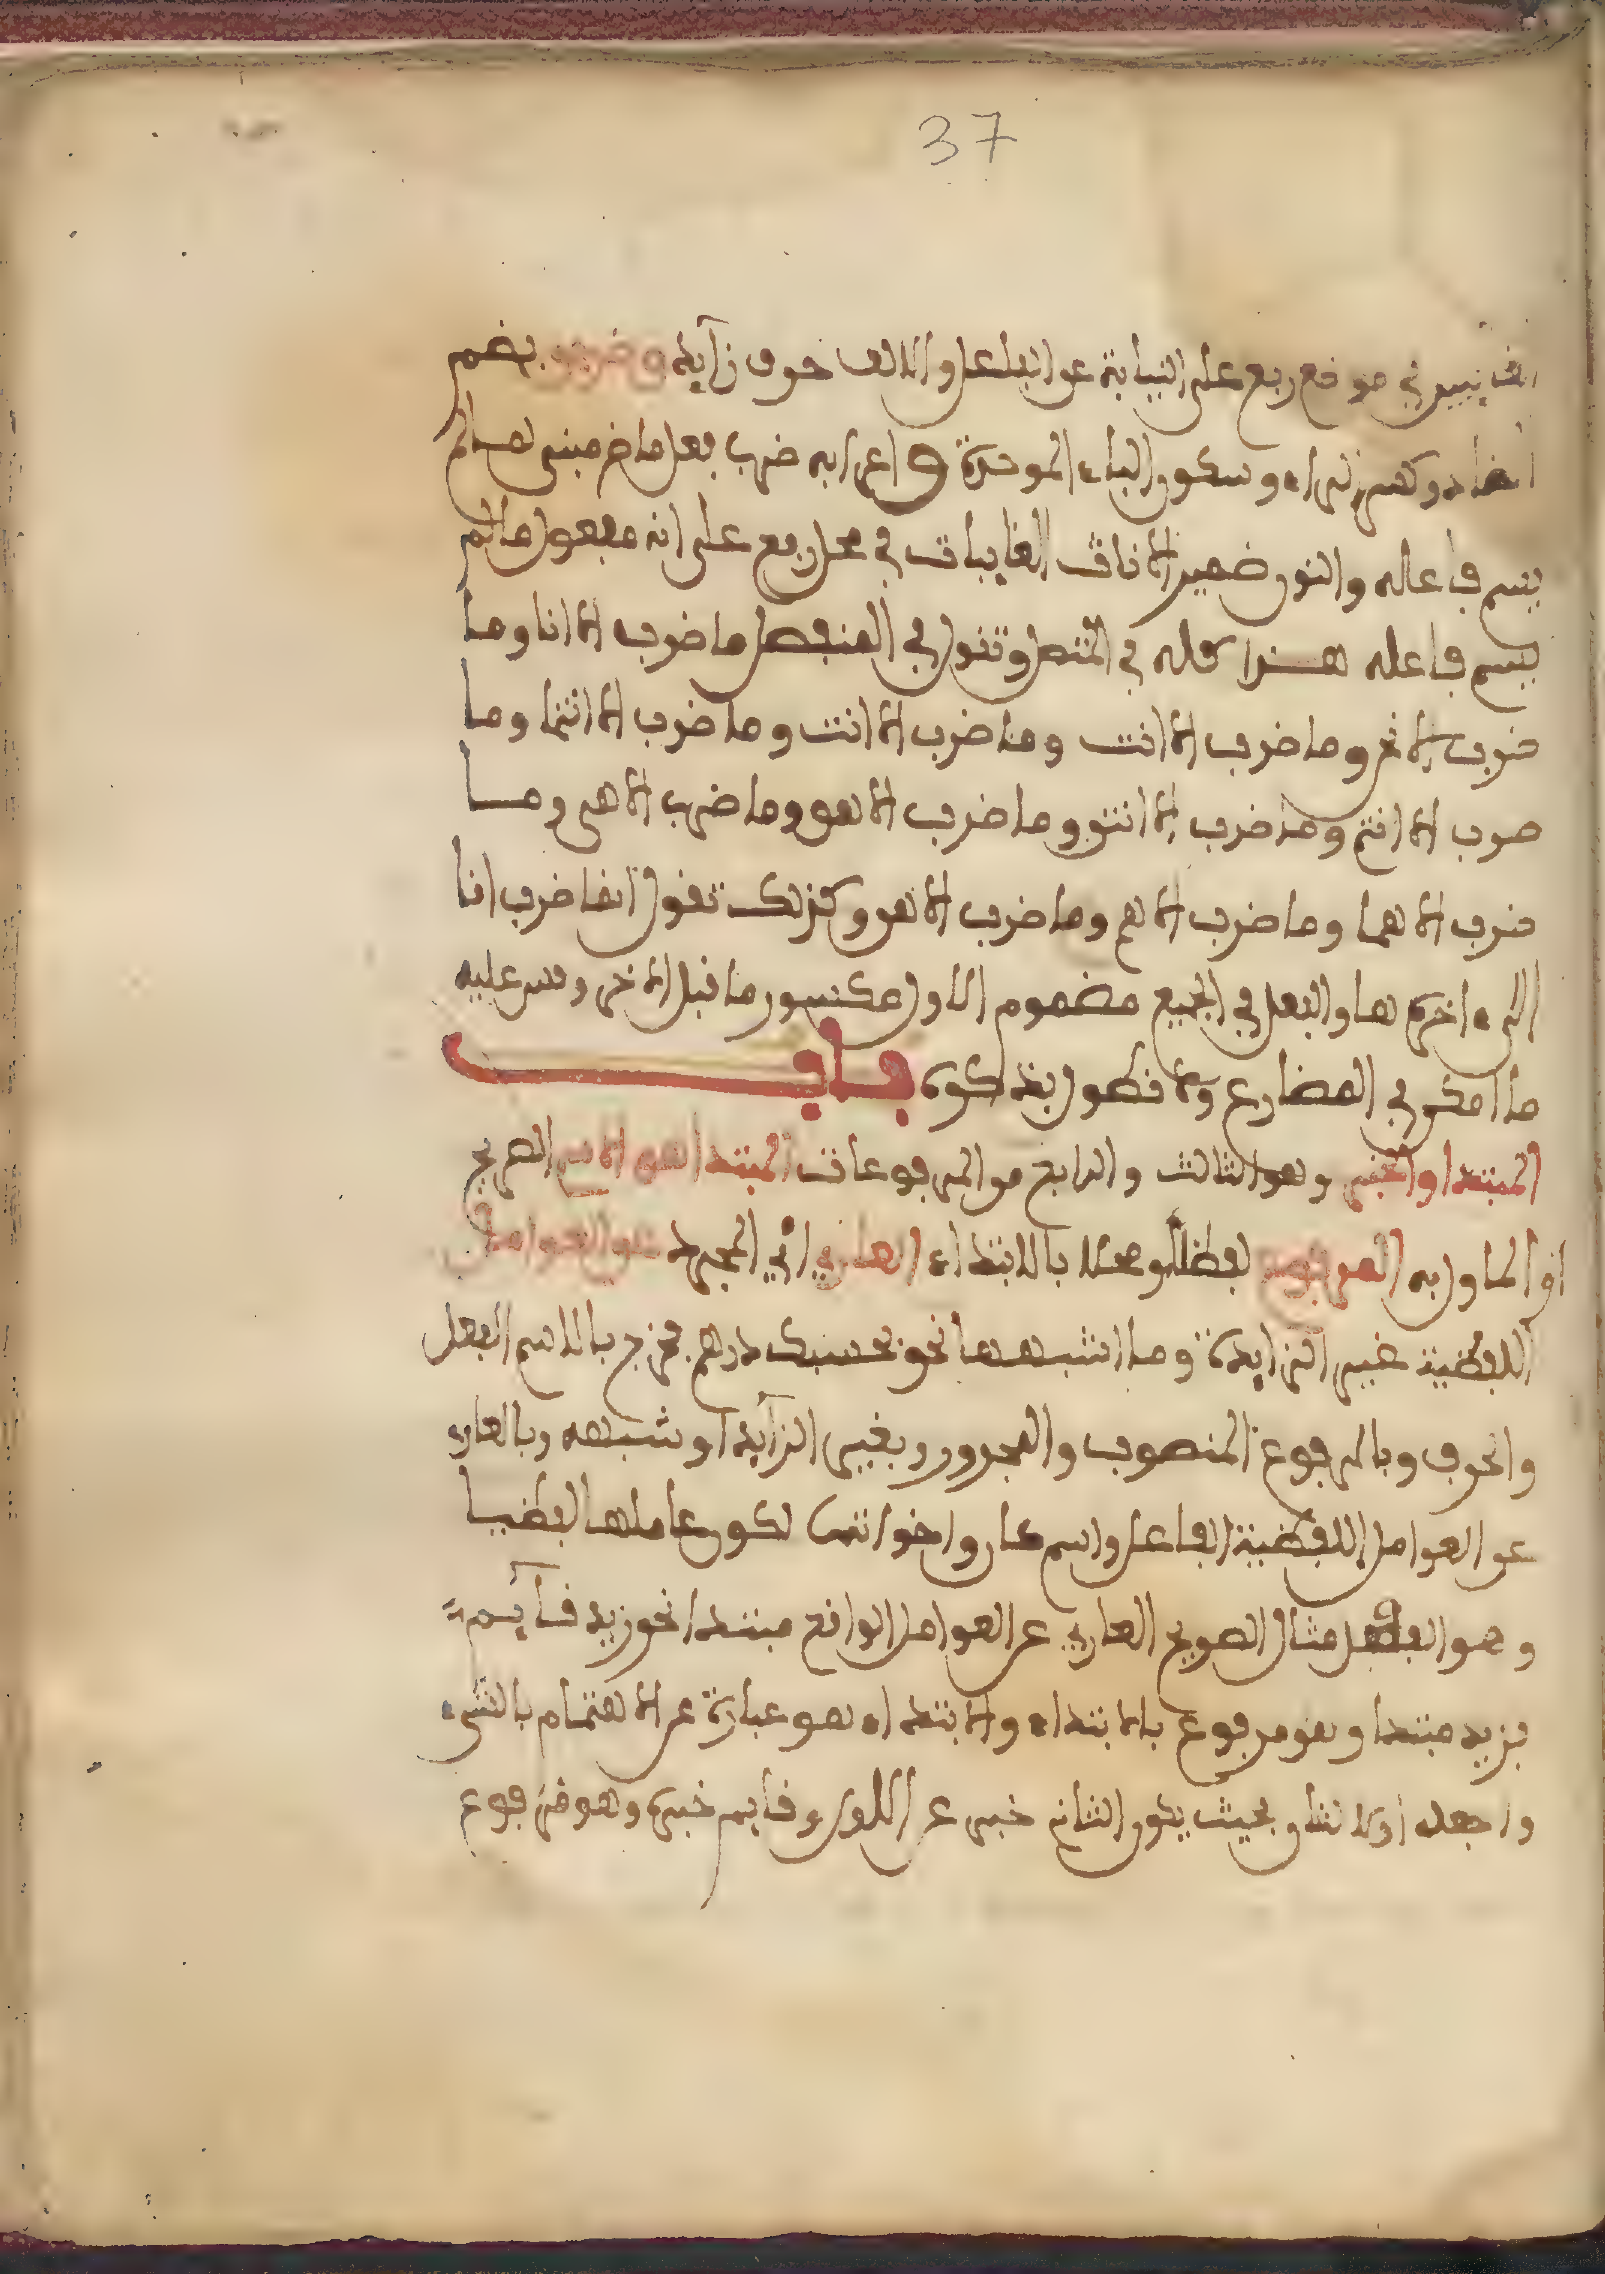 37
الغايبين في موضع رفع على النيابة عن الفاعل والالف حرف زايد وضربن بضم
الضاد وكسر الراء وسكون الباء الموحدة واعرابه ضرب فعل ماض مبني لما لم
يسم فاعله والنون ضمير الاناث الغايبات في محل رفع على انه مفعول ما لم
يسم فاعله هذا كله في المتصل وتقول في المنفصل ما ضرب الا انا وما
ضرب الا نحن وما ضرب الا انت وما ضرب الا انت وما ضرب الا انتما وما
ضرب الا انتم وما ضرب الا انتن وما ضرب الا هو وما ضرب الا هي وما
ضرب الا هما وما ضرب الا هم وما ضرب الا هن وكذلك تقول انما ضرب انا
الى اخرها والفعل في الجميع مضموم الاول مكسور ما قبل الاخر وقس عليه
ما امكن في المضارع ولا نطول بذكره باب
المبتدا والخبر وهو الثالث والرابع من المرفوعات المبتدا هو الاسم الصريح
او الماول به المرفوع لفظا او محلا بالابتداء العاري اي المجرد عن العوامل
اللفظية غير الزايدة وما اشبهها نحو بحسبك درهم فخرج بالاسم الفعل
والحرف وبالمرفوع المنصوب والمجرور وبغير الزايد او شبهه وبالعاري
عن العوامل اللفظية الفاعل واسم كان واخواتها لكون عاملها لفظيا
وهو الفعل مثال الصريح العاري عن العوامل الواقع مبتدا نحو زيد قايم
فزيد مبتدا وهو مرفوع بالابتداء والابتداء هو عبارة عن الاهتمام بالشيء
واجعله اولا لثان بحيث يكون الثاني خبر عن الاول وقايم خبره وهو مرفوع